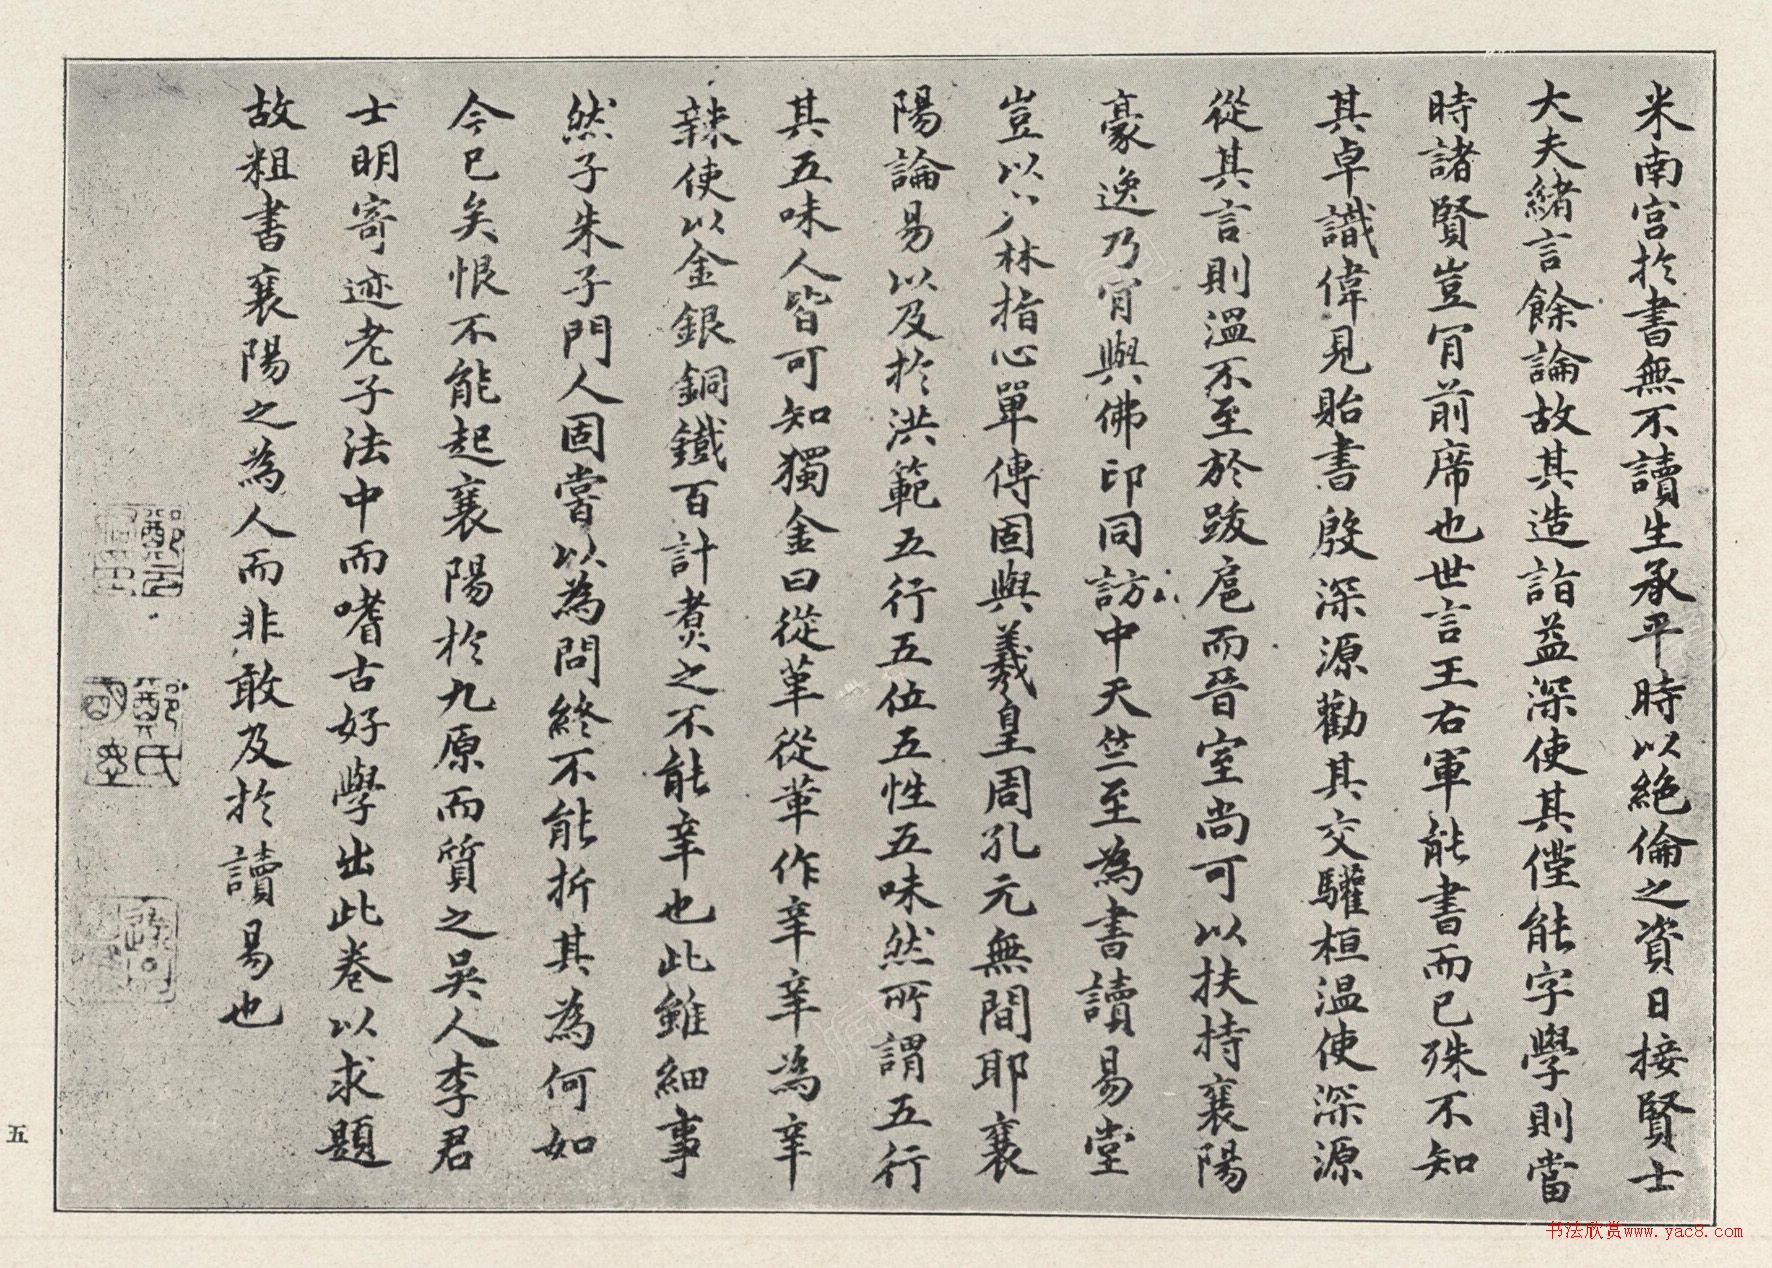 米南宮於書無不讀生承平時以絕倫之資日接賢士
大夫緒言餘論故其造詣益深使其僅能字學則當
時諸賢豈肎前席也世言王右軍能書而已殊不知
其卓識偉見貽書殷深源勸其交驩桓温使深源
從其言則溫不至於跋扈而晉室尚可以扶持襄陽
豪逸乃肎與佛印同訪中天竺至為書讀易堂
豈以林指心單傳固與羲皇周孔元無間耶襄
陽論易以及於洪範五行五位五性五味然所謂五行
其五味人皆可知獨金曰從革從革作辛辛為辛
辣使以金銀銅鐵百計煮之不能辛也此雖細事
然子朱子門人固嘗以為問終不能折其為何如
今已矣恨不能起襄陽於九原而質之吳人李君
士明寄迹老子法中而嗜古好學出此卷以求題
故粗書襄陽之為人而非敢及於讀易也
鄭氏
五
书法欣赏www.yac8.com